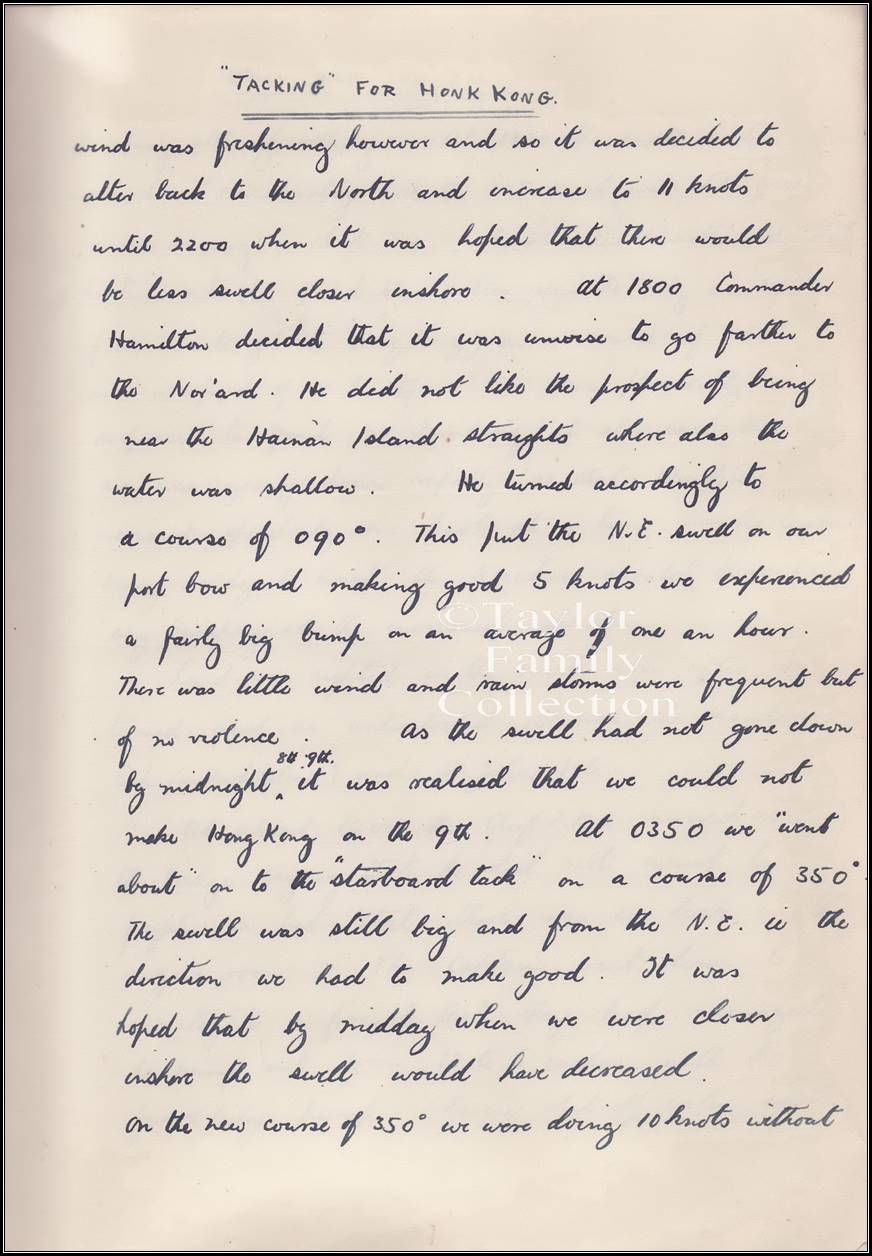 "TACKING" FOR HONK KONG.
wind was freshening however and so it was decided to
alter back to the North and increase to 11 knots
until 2200 when it was hoped that there would
be less swell closer inshore . At 1800 Commander
Hamilton decided that it was unwise to go farther to
the Nor'ard. He did not like the prospect of being
near the Hainan Island straights where also the
water was shallow . He turned accordingly to
a course of 090°. This put the N.E. swell on our
port bow and making good 5 knots we experienced
a fairly big bump on an average of one an hour .
There was little wind and rain storms were frequent but
of no violence . As the swell had not gone down
by midnight 8th 9th. it was realised that we could not
make Hong Kong on the 9th . At 0350 we "went
about" on to the "starboard tack" on a course of 350°.
The swell was still big and from the N.E. ie the
direction we had to make good . It was
hoped that by midday when we were closer
inshore the swell would have decreased .
On the new course of 350° we were doing 10 knots without
©Taylor
Family
Collection